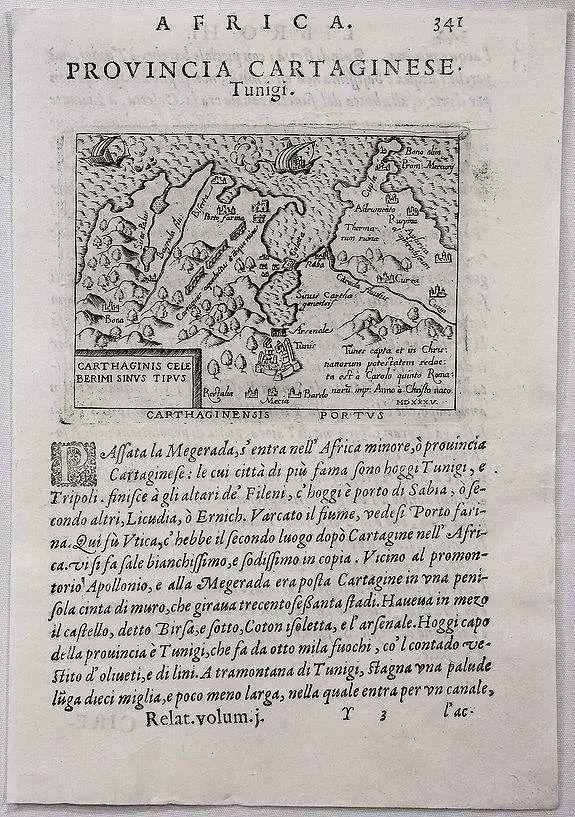 AFRICA. 341
PROVINCIA CARTAGINESE.
Tunigi.
Bono olim
Prom: Mercurij
Porto farina
Adrumento
Ruspina
Thermarum
rum ruinæ
Raba
Curea
Sinus Carthaginensis
Bona
Arsenale
Tunis
Rastalia
Mecia
Bardo
CARTHAGINIS CELE
BERIMI SINVS TIPVS
Tunes capta et in Chris
tianorum potestatem redac
ta est à Carolo quinto Roma:
norū imp: Anno à Christo nato
MDXXXV.
CARTHAGINENSIS PORTVS
PAssata la Megerada, s'entra nell' Africa minore, ò prouincia
Cartaginese: le cui città di più fama sono hoggi Tunigi, e
Tripoli. finisce à gli altari de' Fileni, c'hoggi è porto di Sabia, ò se-
condo altri, Licudia, ò Ernich. Varcato il fiume, vedesi Porto fari-
na. Qui fù Vtica, c'hebbe il secondo luogo dopò Cartagine nell' Afri-
ca. vi si fa sale bianchissimo, e sodissimo in copia. Vicino al promon-
torio Apollonio, e alla Megerada era posta Cartagine in vna peni-
sola cinta di muro, che giraua trecentosessanta stadi. Haueua in mezo
il castello, detto Birsa, e sotto, Coton isoletta, e l'arsenale. Hoggi capo
della prouincia è Tunigi, che fa da otto mila fuochi, co'l contado ve-
stito d'oliueti, e di lini. A tramontana di Tunigi, stagna vna palude
lūga dieci miglia, e poco meno larga, nella quale entra per vn canale,
Relat. volum. j. Y 3 l'ac-